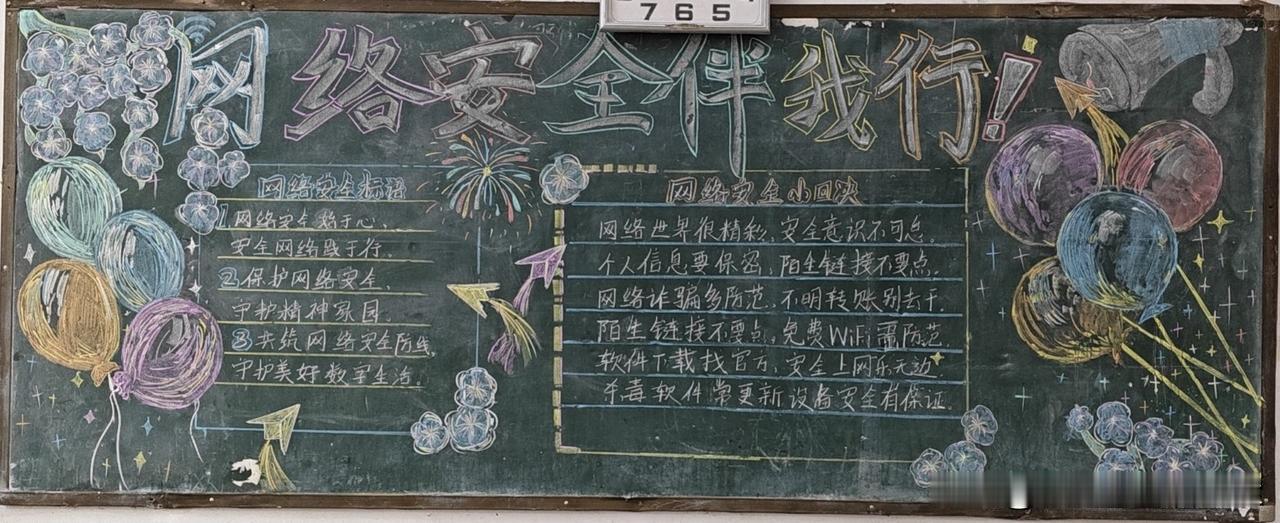 765
网络安全伴我行!
网络安全标语
1网络安全系于心,
安全网络践于行.
②保护网络安全,
守护精神家园.
③共筑网络安全防线,
守护美好数字生活.
网络安全小口决
网络世界很精彩,安全意识不可忘.
个人信息要保密,陌生链接不要点.
网络诈骗多防范,不明转账别去干.
陌生链接不要点,免费WiFi需防范.
软件下载找官方,安全上网乐无边
杀毒软件常更新设备安全有保证.